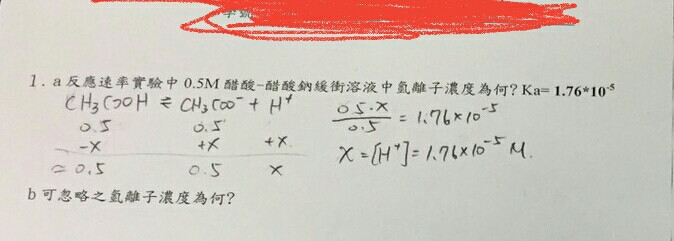 1. a 反應速率實驗中 0.5M 醋酸-醋酸鈉緩衝溶液中氫離子濃度為何? Ka= 1.76*10⁻⁵
CH₃COOH ⇌ CH₃COO⁻ + H⁺
0.5 0.5
-X +X +X
≈ 0.5 0.5 X
0.5·X / 0.5 = 1.76×10⁻⁵
X = [H⁺] = 1.76×10⁻⁵ M.
b 可忽略之氫離子濃度為何?